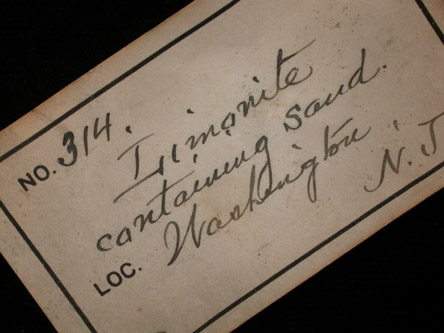 NO. 314.
Limonite
containing sand.
LOC. Washington, N. J